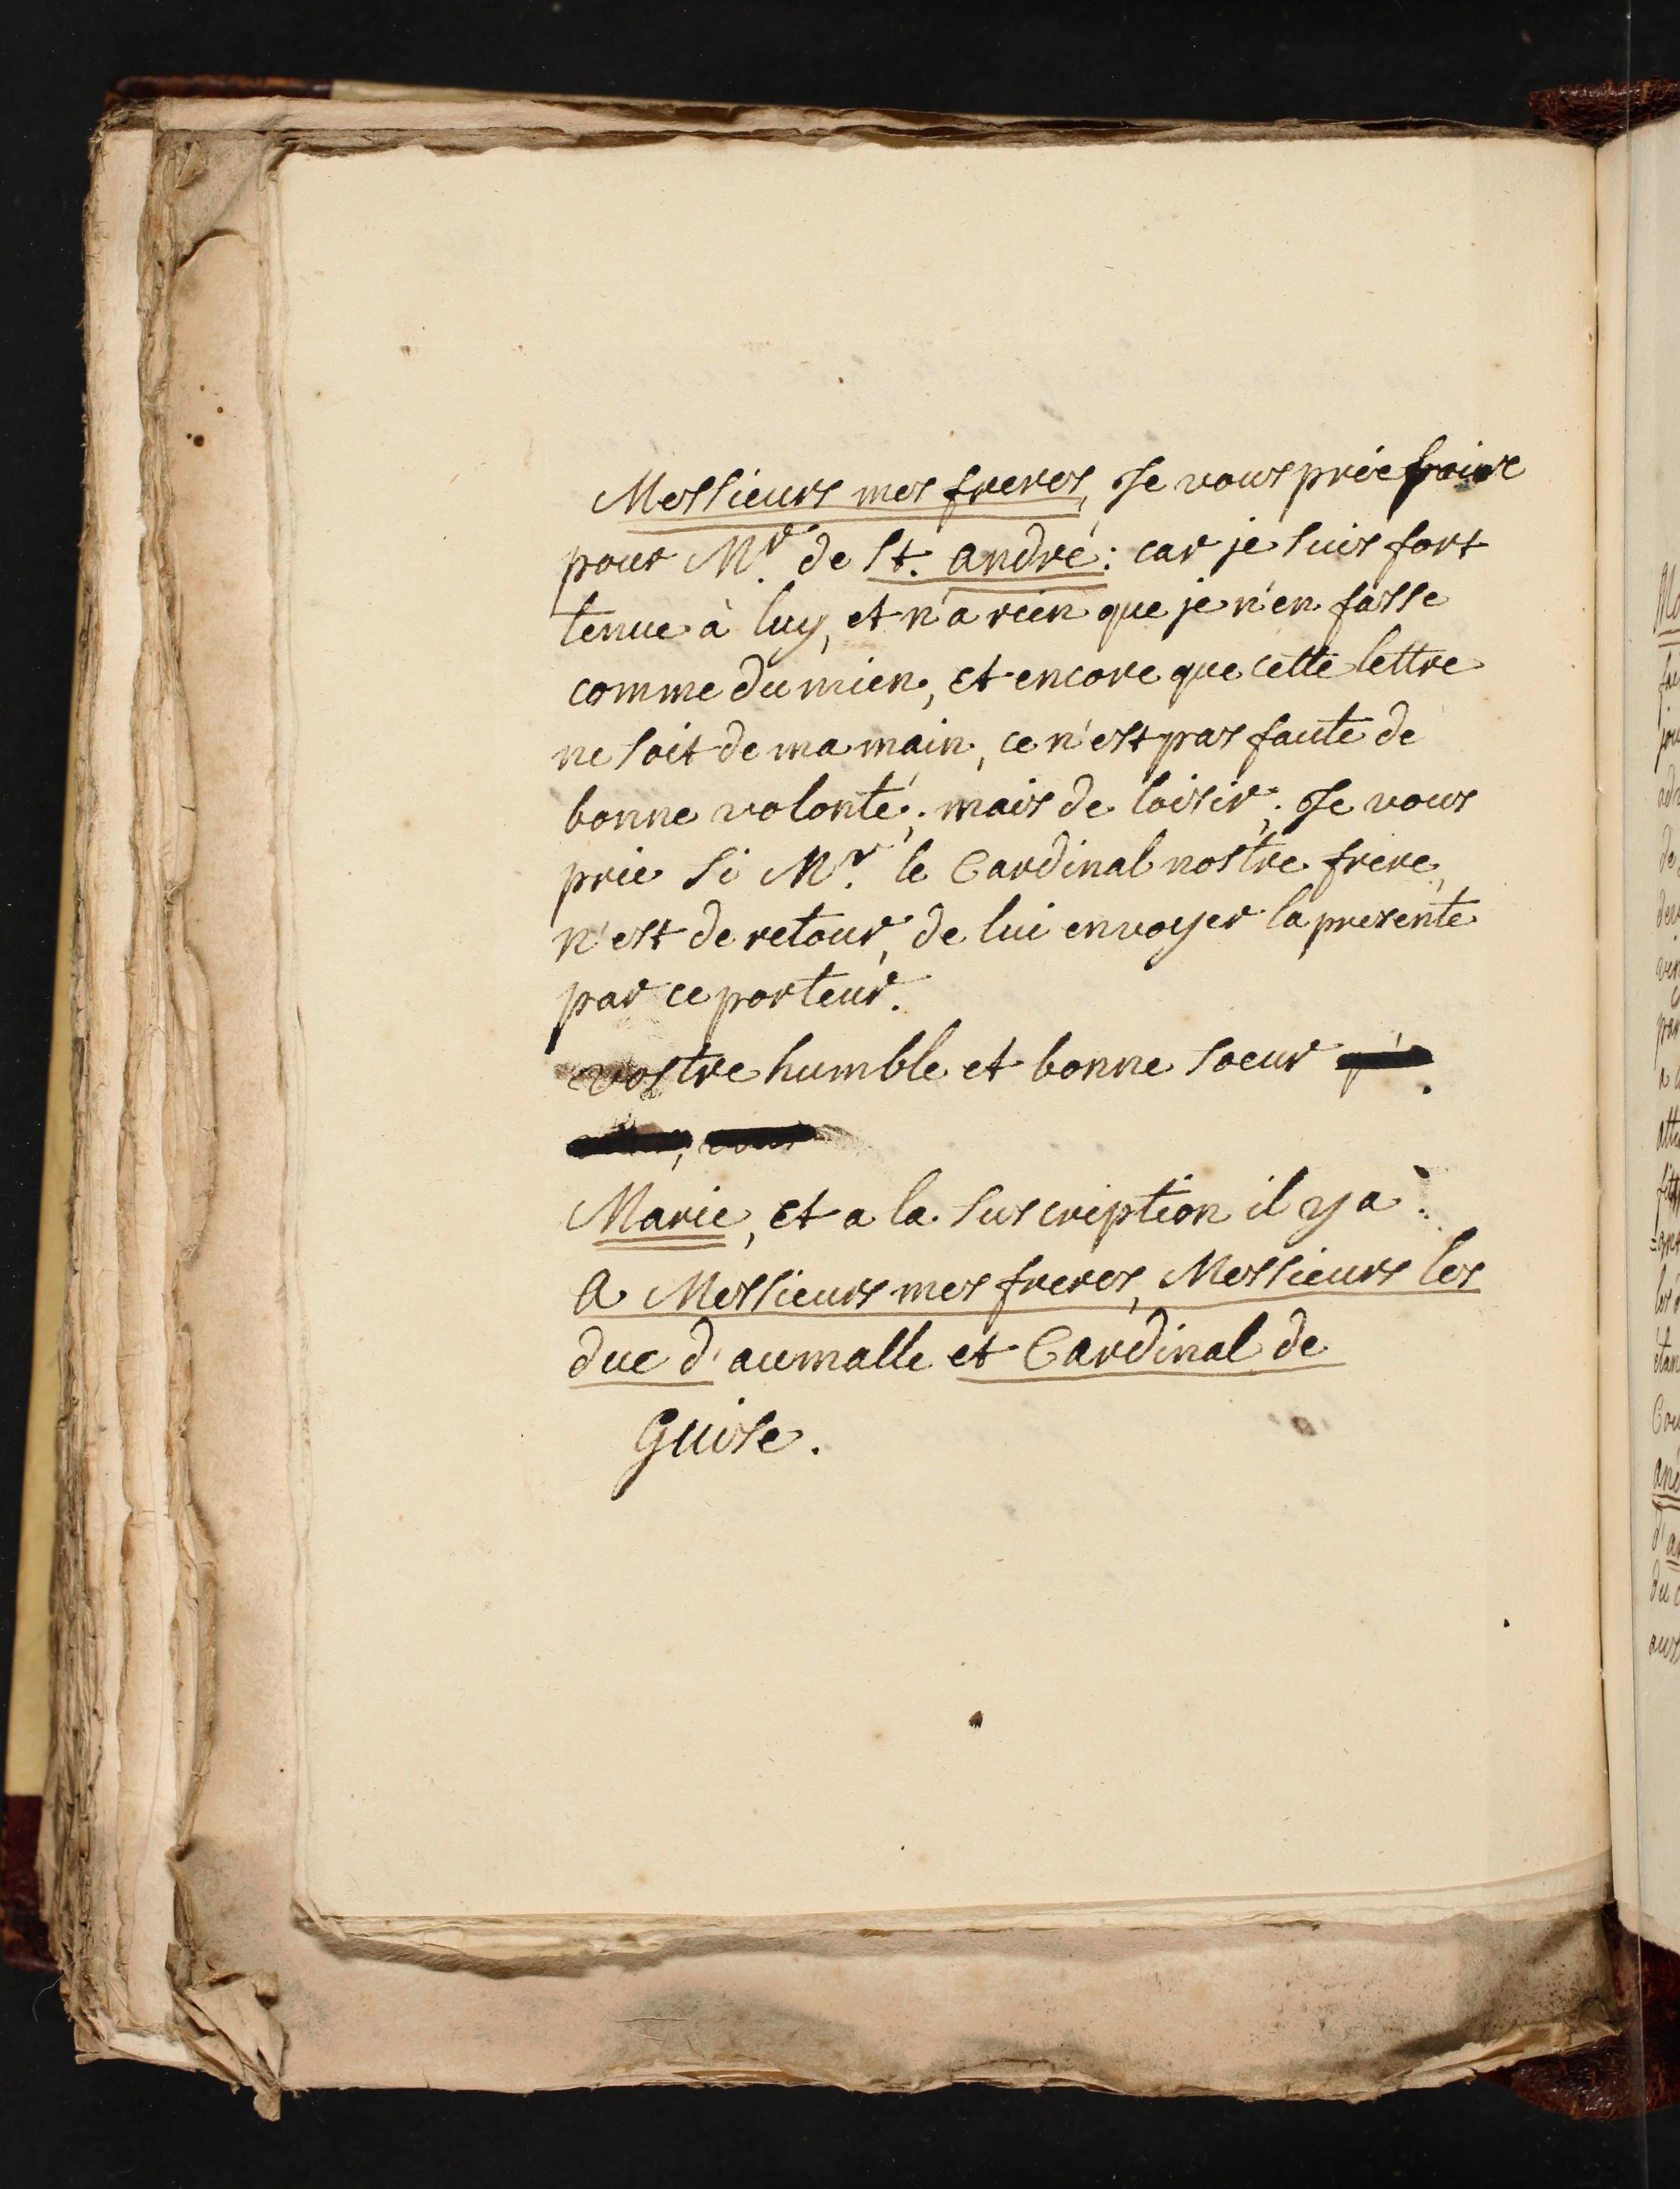 Messieurs mes freres, Je vous prie faire
pour Mr. de St. André: car je suis fort
tenue à luy, et n'a rien que je n'en fasse
comme du mien, et encore que cette lettre
ne soit de ma main, ce n'est pas faute de
bonne volonté; mais de loisir; Je vous
prie si Mr. le Cardinal nostre frere,
n'est de retour, de lui envoyer la presente
par ce porteur.
vostre humble et bonne soeur
Marie, et a la suscription il y a:
A Messieurs mes freres, Messieurs les
duc d'aumalle et Cardinal de
Guise.